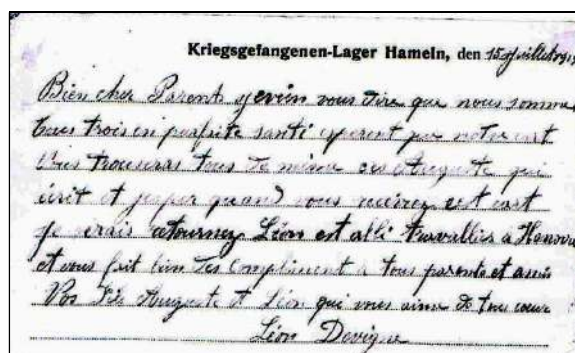 Kriegsgefangenen-Lager Hameln, den 15 juillet 191
Bien cher Parents je vien vous dire que nous somme
tous trois en parfaite santé esperent que notre cart
Vous trouveras tous de même ces Auguste qui
écrit et jesper quand vous recevrez cest cart
je serais retournez Léon est allé travallier à Hanovre
et vous fait bien des compliment à tous parents et amis
Vos Fils Auguste et Léon qui vous aime de tous cœur
Léon Devigne